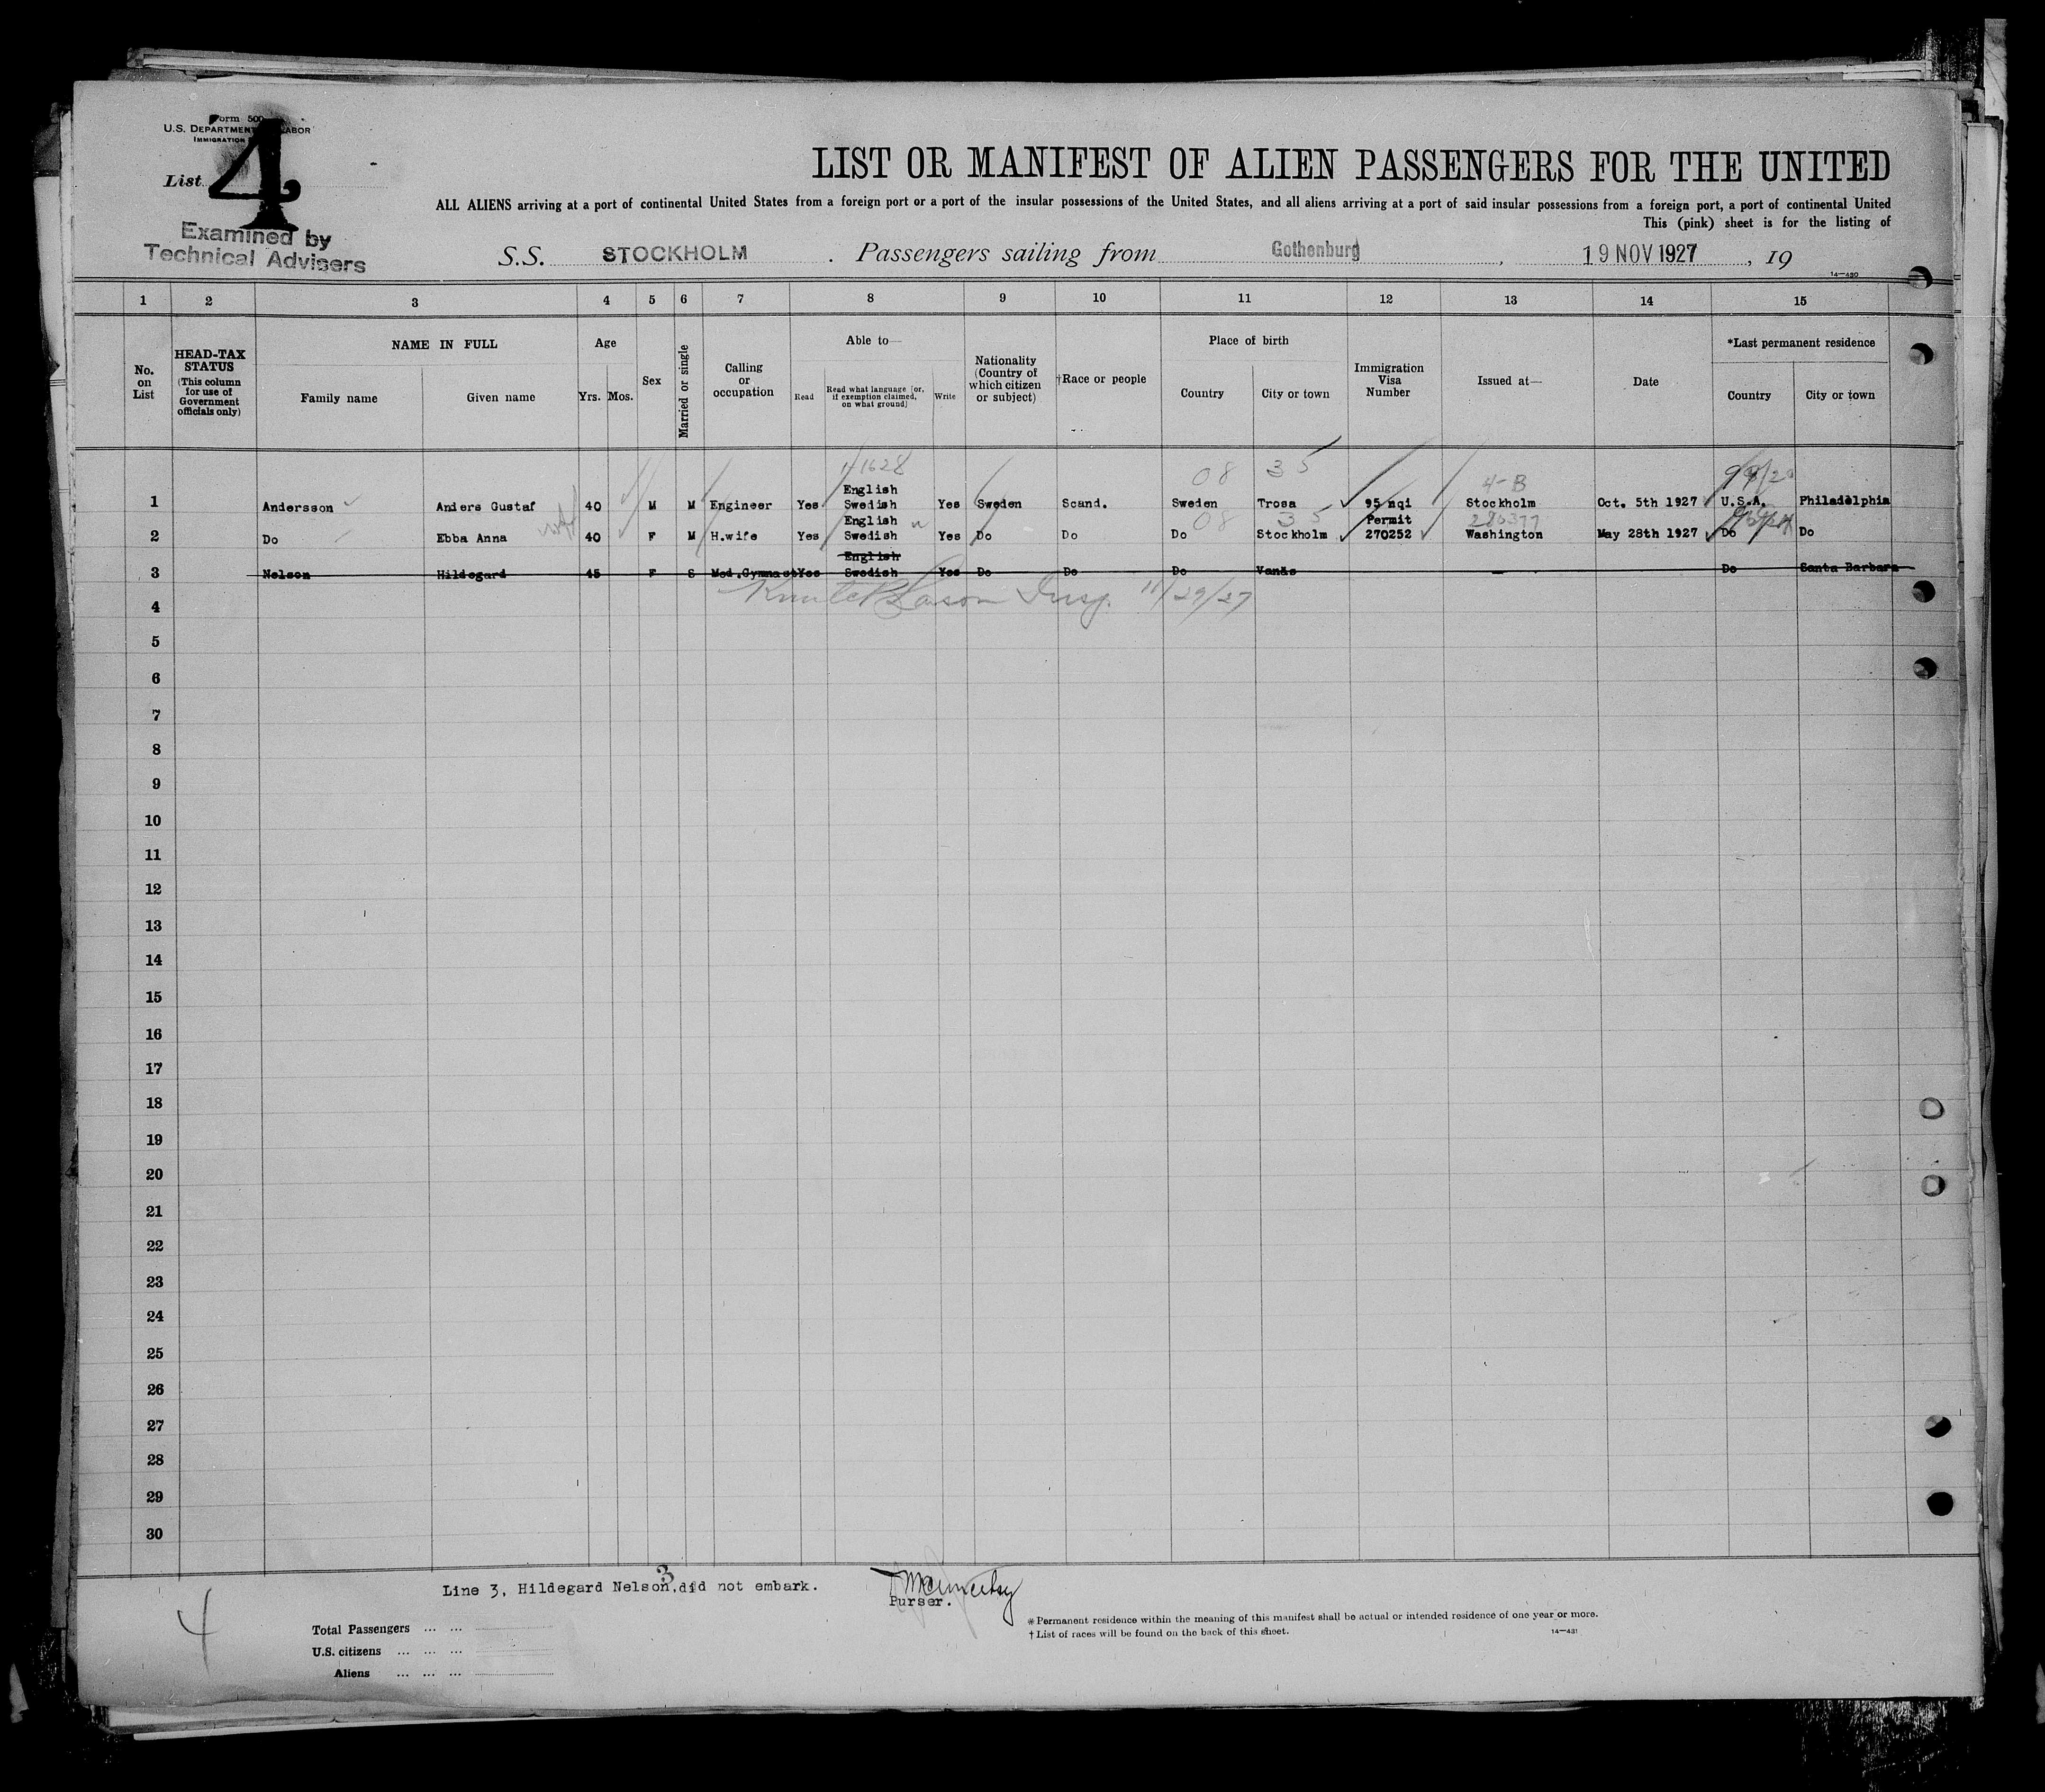 Form 500
U.S. DEPARTMENT LABOR
IMMIGRATION
List 4
Examined by
Technical Advisers
LIST OR MANIFEST OF ALIEN PASSENGERS FOR THE UNITED
ALL ALIENS arriving at a port of continental United States from a foreign port or a port of the insular possessions of the United States, and all aliens arriving at a port of said insular possessions from a foreign port, a port of continental United
This (pink) sheet is for the listing of
S.S. STOCKHOLM. Passengers sailing from Gothenburg, 19 NOV 1927, 19
14—430
1 2 3 4 5 6 7 8 9 10 11 12 13 14 15
No. on List
HEAD-TAX STATUS (This column for use of Government officials only)
NAME IN FULL
Family name
Given name
Age
Yrs. Mos.
Sex
Married or single
Calling or occupation
Able to—
Read
Read what language [or, if exemption claimed, on what ground]
Write
Nationality (Country of which citizen or subject)
†Race or people
Place of birth
Country
City or town
Immigration Visa Number
Issued at—
Date
*Last permanent residence
Country
City or town
08 35 4-B
1 Andersson Anders Gustaf 40 M M Engineer Yes English Swedish Yes Sweden Scand. Sweden Trosa 95 nqi Stockholm Oct. 5th 1927 U.S.A. Philadelphia
08 35
2 Do Ebba Anna 40 F M H.wife Yes English Swedish Yes Do Do Do Stockholm Permit 270252 Washington May 28th 1927 Do Do
3 Nelson Hildegard 45 F S Med.Gymnast Yes English Swedish Yes Do Do Do Vanäs — Do Santa Barbara
Insp. 11/29/27
4
5
6
7
8
9
10
11
12
13
14
15
16
17
18
19
20
21
22
23
24
25
26
27
28
29
30
3
Line 3, Hildegard Nelson, did not embark.
Purser.
4
Total Passengers ... ...
U.S. citizens ... ... ...
Aliens ... ... ...
* Permanent residence within the meaning of this manifest shall be actual or intended residence of one year or more.
† List of races will be found on the back of this sheet.
14—431